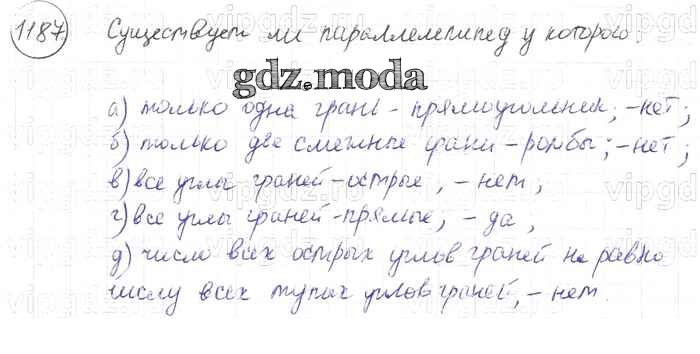 1187 Существует ли параллелепипед у которого:
gdz.moda
а) только одна грань - прямоугольник; -нет;
б) только две смежные грани - ромбы; -нет;
в) все углы граней - острые, - нет;
г) все углы граней - прямые; - да;
д) число всех острых углов граней не равно
числу всех тупых углов граней, - нет.